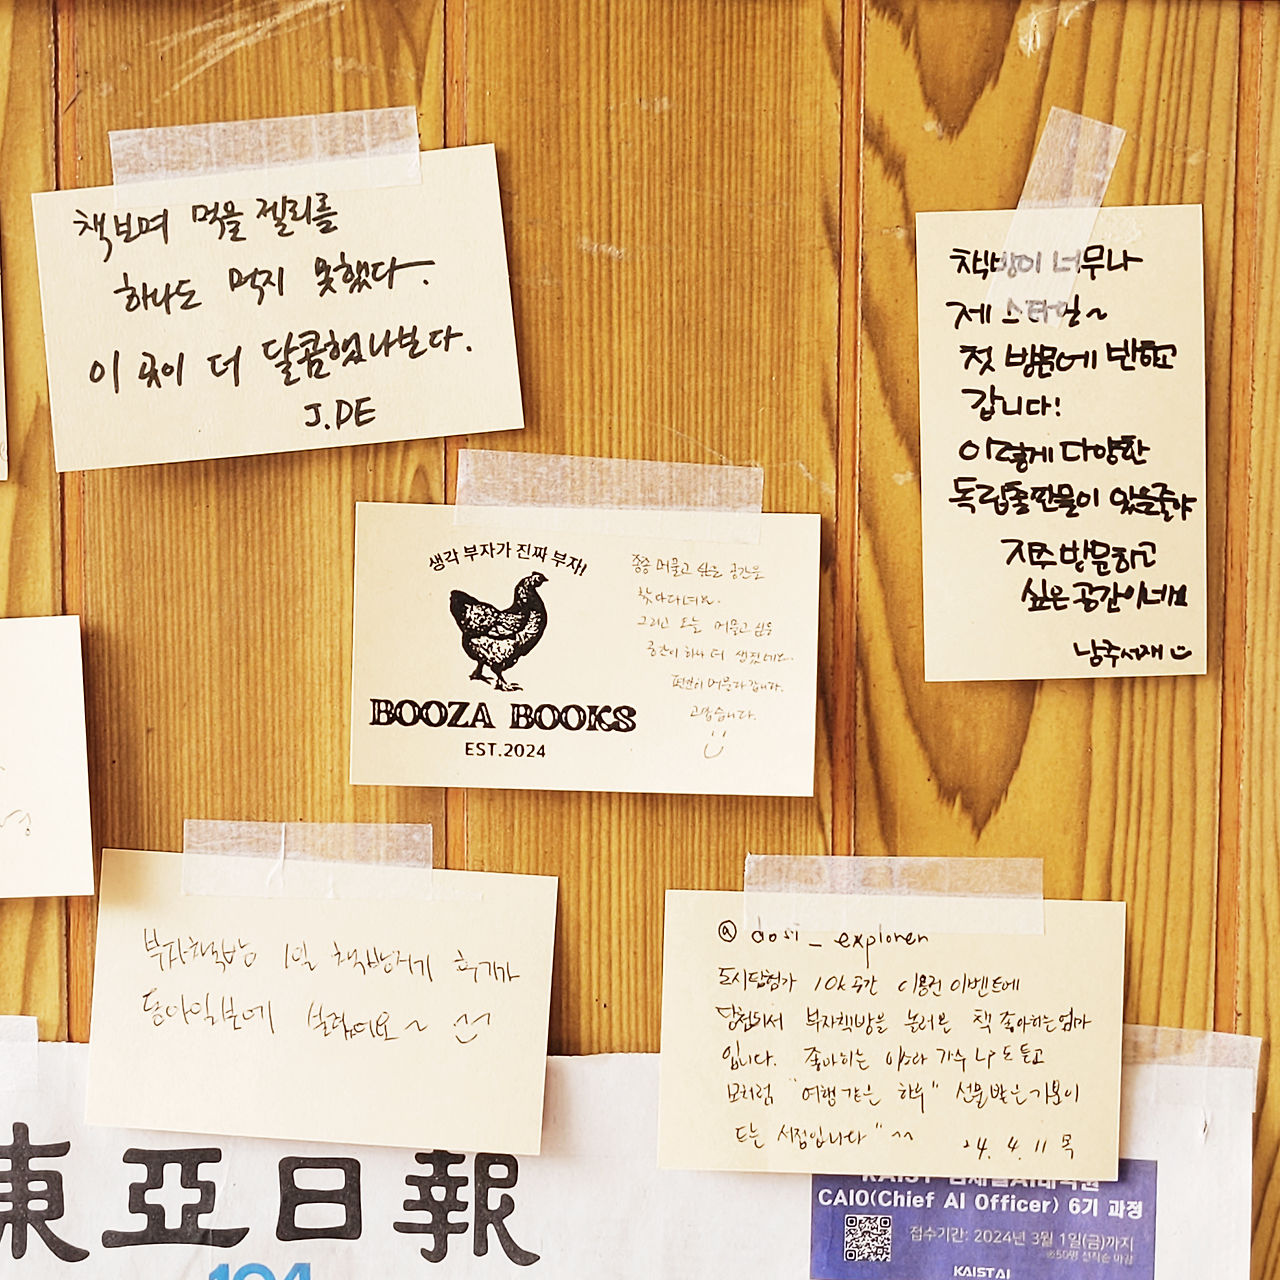 책보며 먹을 젤리를
하나도 먹지 못했다.
이 곳이 더 달콤했나보다.
J.DE
책방이 너무나
제 스타일~
첫 방문에 반하고
갑니다!
이렇게 다양한
독립출판물이 있을줄야
자주 방문하고
싶은 공간이네요
남주서재
생각 부자가 진짜 부자!
BOOZA BOOKS
EST.2024
종종 머물고 싶은 공간을
찾아다녀요.
그리고 오늘 머물고 싶은
공간이 하나 더 생겼네요.
편안히 머물다 갑니다.
고맙습니다.
부자책방 1일 책방지기 후기가
동아일보에 실렸어요~
@ dosi_explorer
도시탐험가 10k 공간 이용권 이벤트에
당첨되서 부자책방을 놀러온 책 좋아하는 엄마
입니다. 좋아하는 이소라 가수 LP도 듣고
모처럼 "여행같은 하루" 선물받은 기분이
드는 서점입니다" ^^
24. 4. 11 목
東亞日報
104
CAIO(Chief AI Officer) 6기 과정
접수기간: 2024년 3월 1일(금)까지
※50명 선착순 마감
KAIST AI